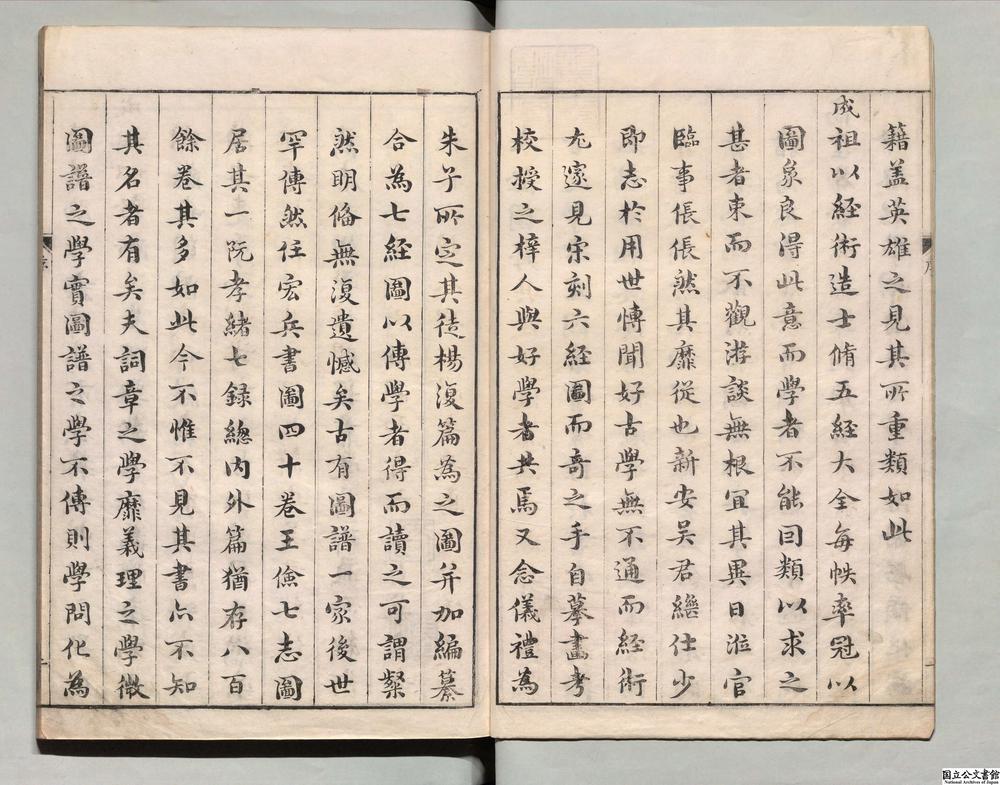 籍盖英雄之見其所重類如此
成祖以經術造士脩五經大全每帙率冠以
圖象良得此意而學者不能回類以求之
甚者束而不觀游談無根宜其異日涖官
臨事倀倀然其靡從也新安吴君繼仕少
即志於用世愽聞好古學無不通而經術
尤邃見宋刻六經圖而奇之手自摹畫考
校授之梓人與好學者共焉又念儀禮為
朱子所定其徒楊復篇為之圖并加編纂
合為七經圖以傳學者得而讀之可謂粲
然明俻無復遺憾矣古有圖譜一家後世
罕傳然任宏兵書圖四十卷王儉七志圖
居其一阮孝緒七録總内外篇猶存八百
餘卷其多如此今不惟不見其書亦不知
其名者有矣夫詞章之學靡義理之學微
圖譜之學實圖譜之學不傳則學問化為
序
國立公文書館
National Archives of Japan